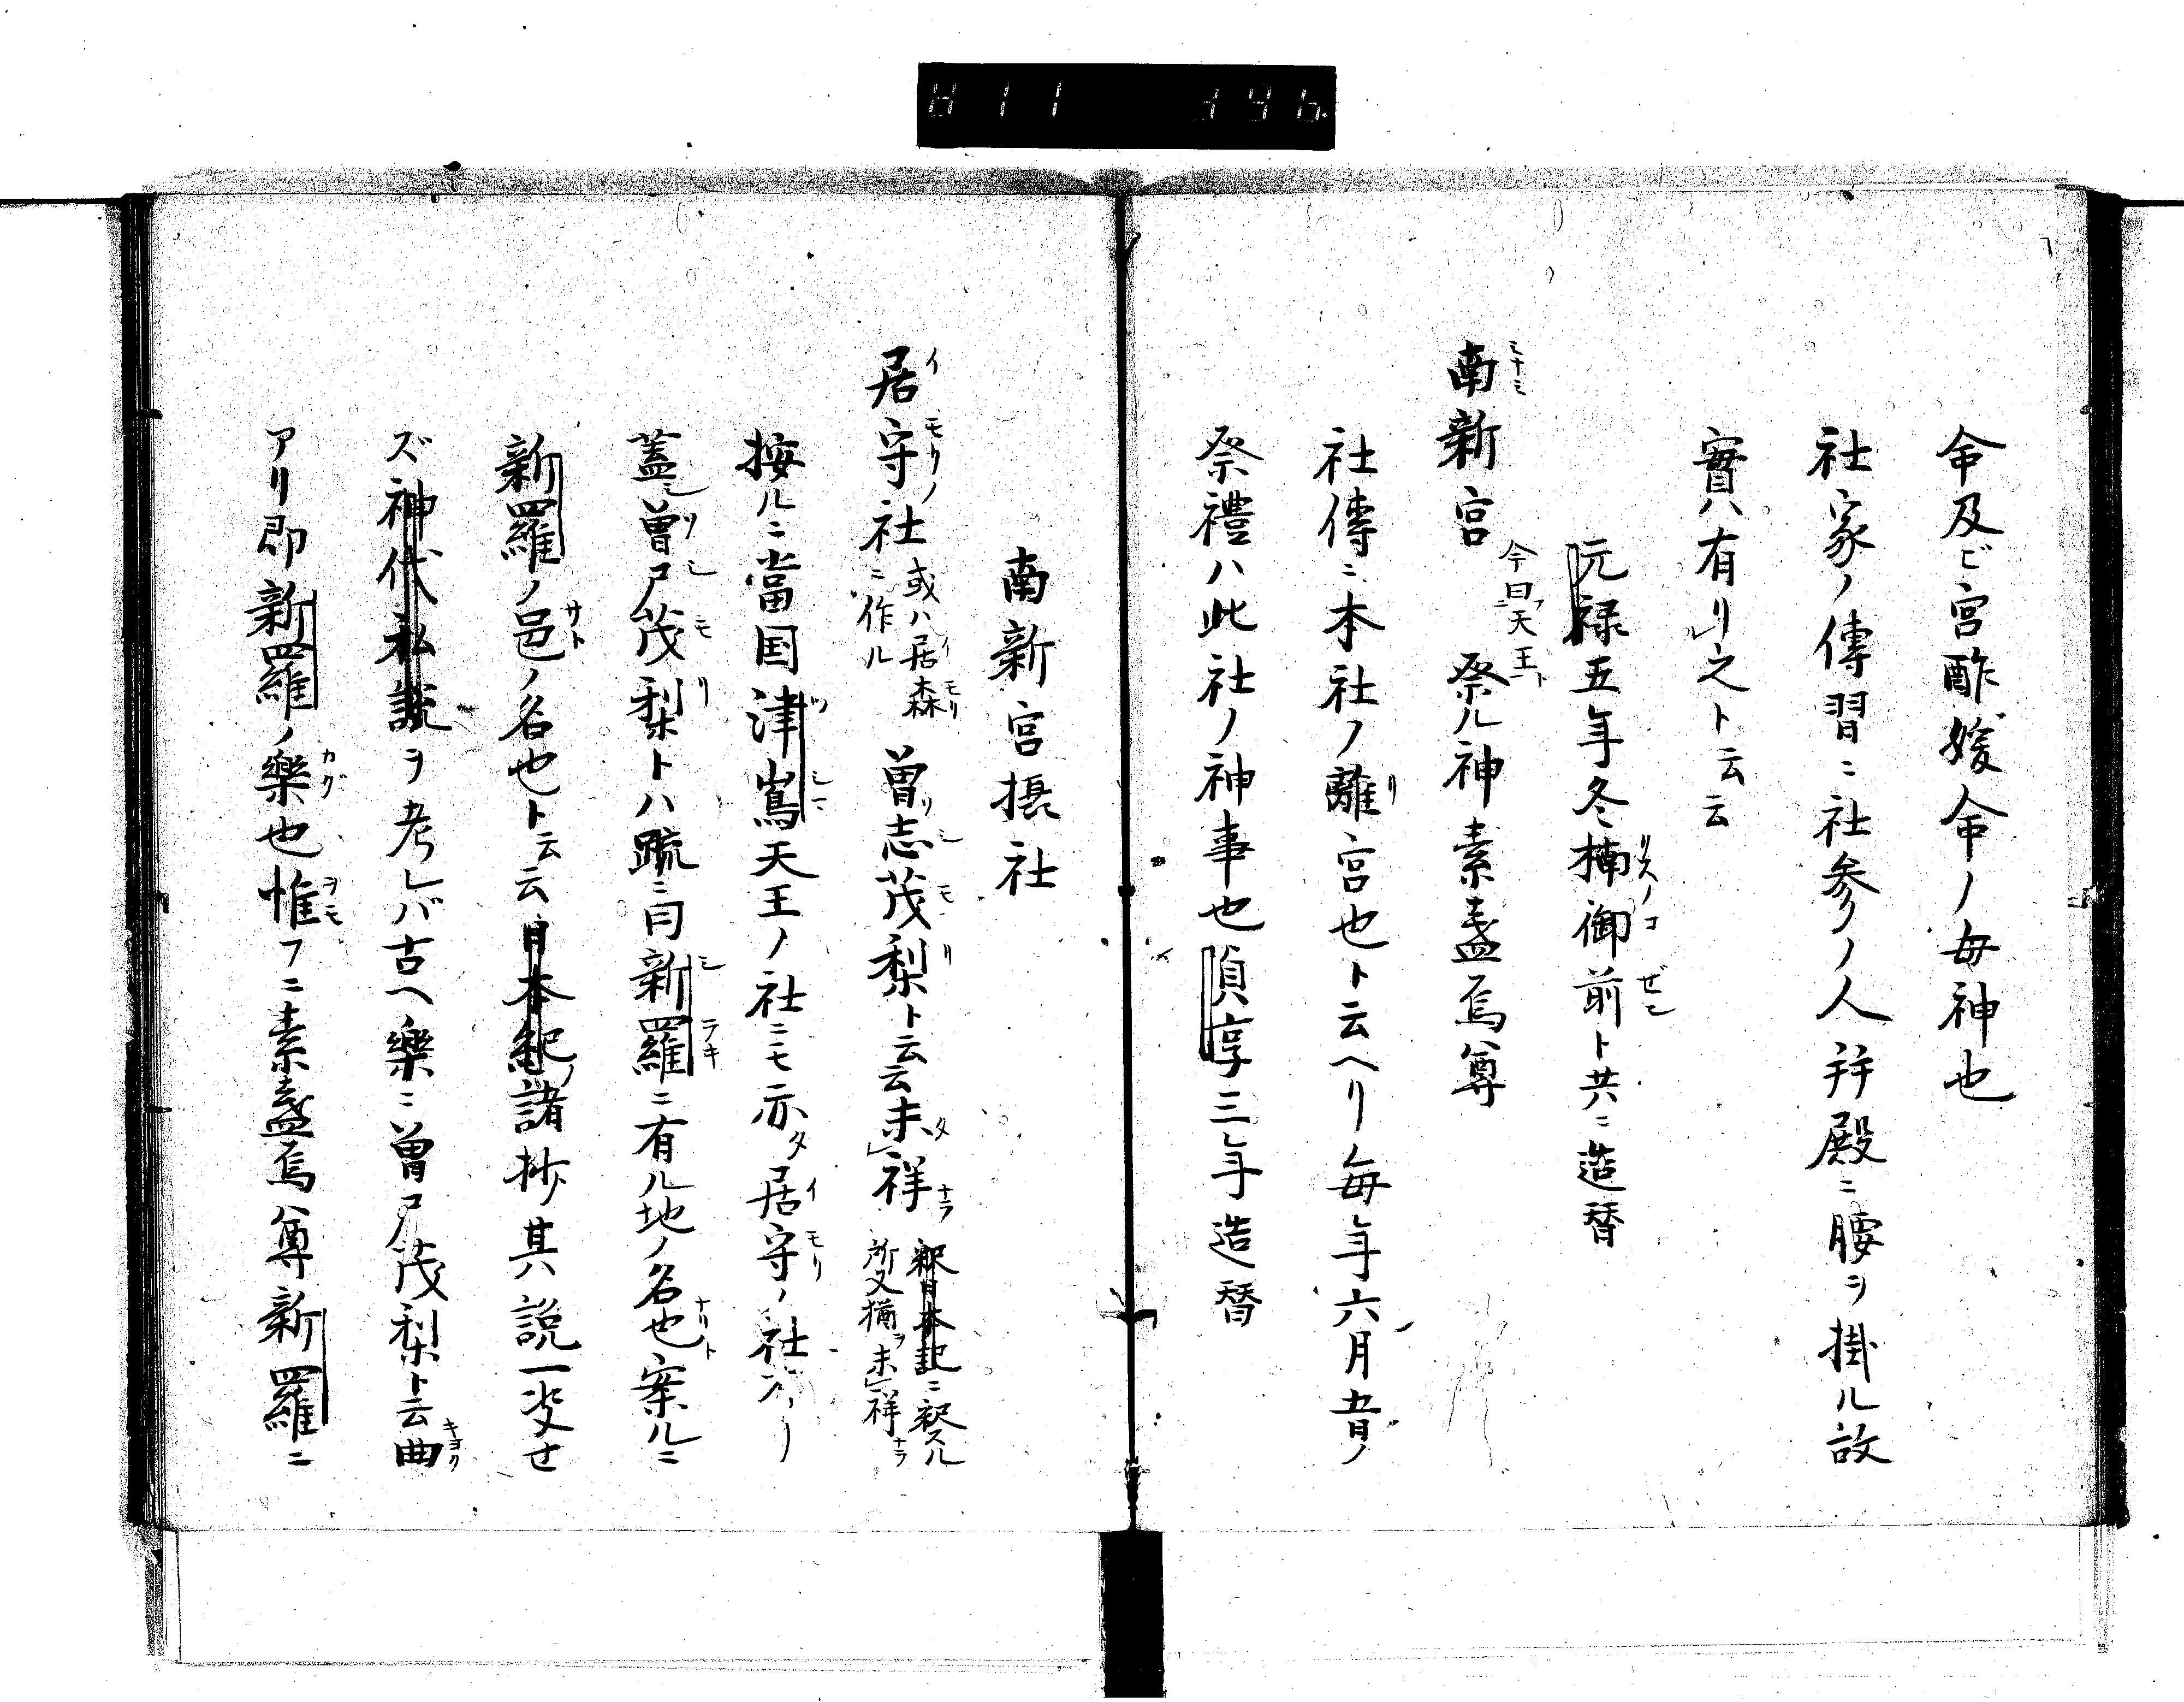 命及ビ宮酢媛命ノ毎神也
社家ノ傳習ニ社参ノ人拜殿ニ腰ヲ掛ル故
實ハ有リ之ト云云
元禄五年冬楠御前ト共ニ造替
南新宮 今曰天王ト 祭ル神素盞烏尊
社傳ニ本社ノ離宮也ト云ヘリ毎年六月五日ノ
祭禮ハ此社ノ神事也貞享三年造替
南新宮摂社
居守ノ社 或ハ居森ニ作ル 曽志茂梨ト云云未祥 釈日本記ニ釈スル所又猶ヲ未祥ナラ
按ルニ當国津嶌天王ノ社ニモ亦タ居守ノ社アリ
蓋シ曽尸茂梨トハ疏ニ曰新羅ニ有ル地ノ名也案ルニ
新羅ノ邑ノ名也ト云云日本紀ノ諸抄其説一定せ
ズ神代私説ヲ考レバ古ヘ樂ニ曽尸茂梨ト云曲
アリ即新羅ノ樂也惟フニ素盞烏尊新羅ニ